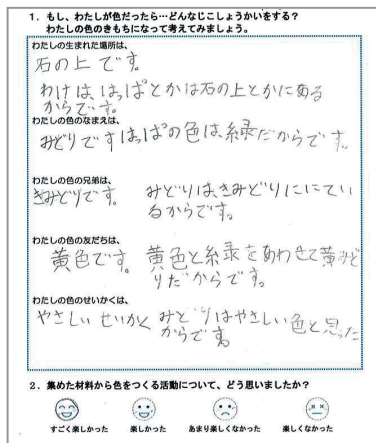 1. もし、わたしが色だったら…どんなじこしょうかいをする?
わたしの色のきもちになって考えてみましょう。
わたしの生まれた場所は、
石の上です。
わけは、はっぱとかは石の上とかにある
からです。
わたしの色のなまえは、
みどりですはっぱの色は、緑だからです。
わたしの色の兄弟は、
きみどりです。 みどりは、きみどりににてい
るからです。
わたしの色の友だちは、
黄色です。 黄色と緑をあわせて黄みど
りだからです。
わたしの色のせいかくは、
やさしいせいかく みどりはやさしい色と思った
からです。
2. 集めた材料から色をつくる活動について、どう思いましたか?
すごく楽しかった 楽しかった あまり楽しくなかった 楽しくなかった